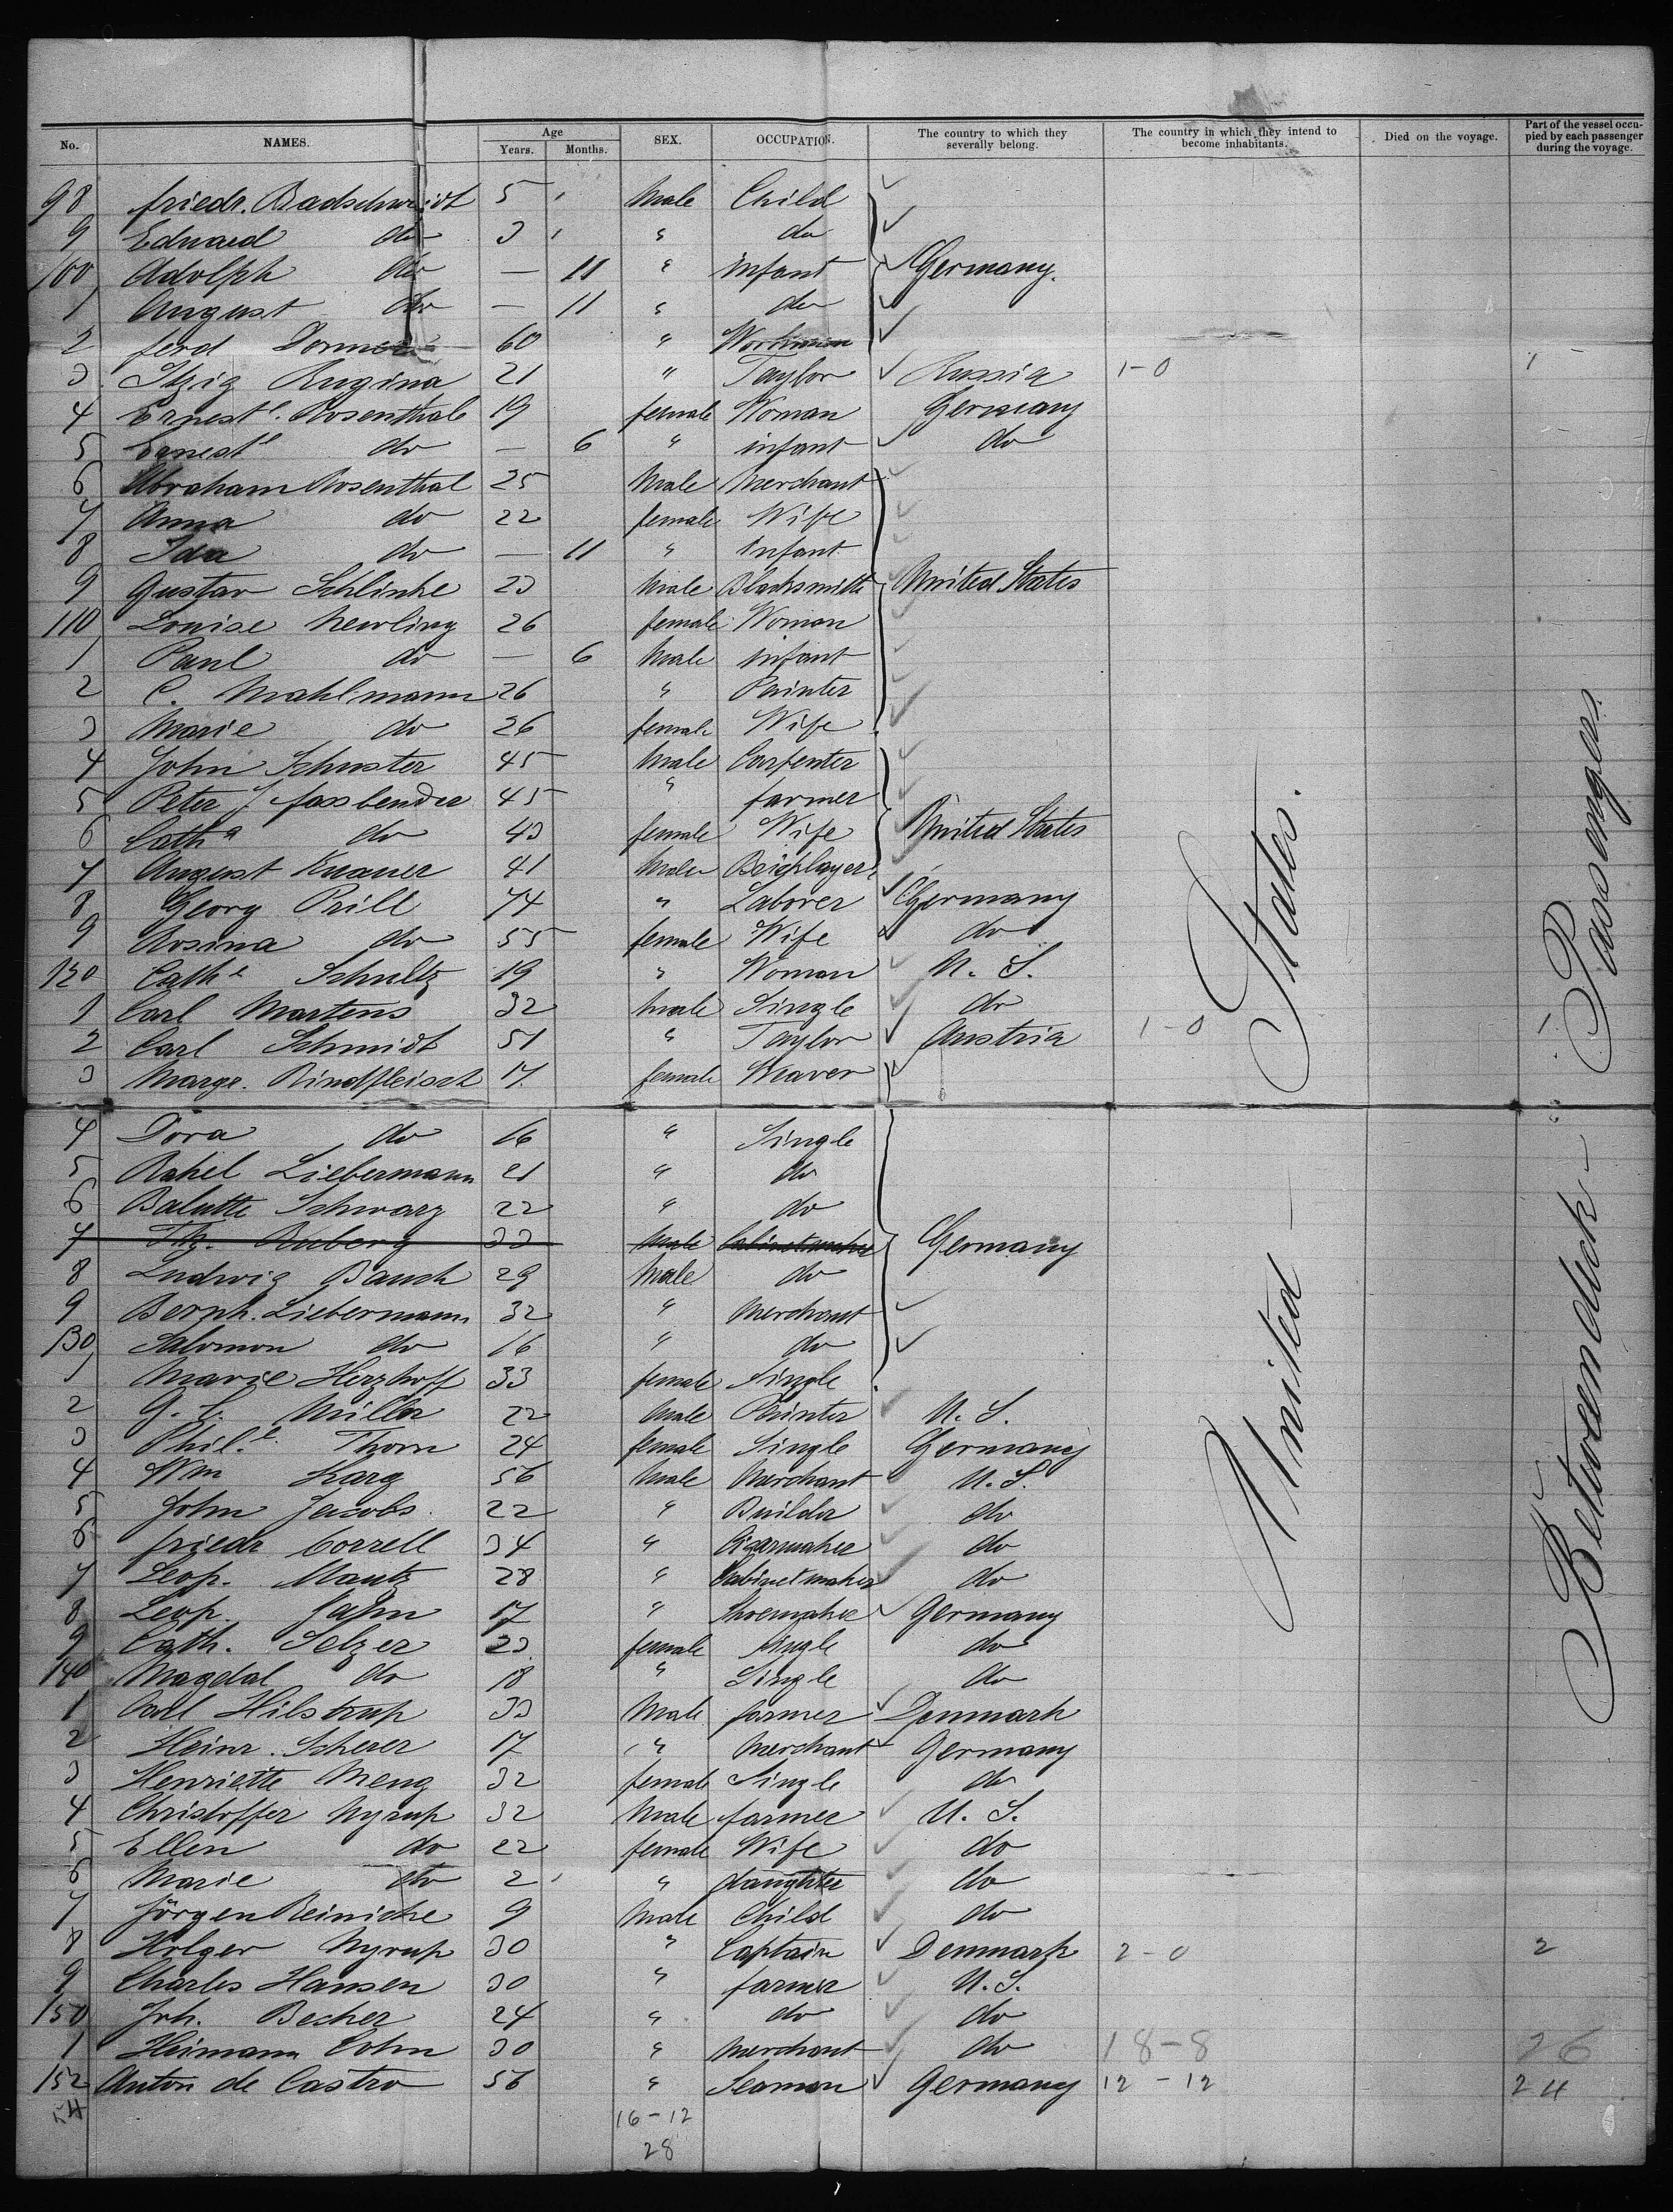 No. NAMES. Age Years. Months. SEX. OCCUPATION. The country to which they severally belong. The country in which they intend to become inhabitants. Died on the voyage. Part of the vessel occupied by each passenger during the voyage.
98 friedr. Badschmidt 5 Male Child
9 Eduard do 3 " do
100 Adolph do — 11 " Infant Germany.
1 August do — 11 " do
2 ferd Dormer 60 " Workman
3 Itzig Rugina 21 " Taylor Russia 1-0 1
4 Ernest<sup>e</sup>. Rosenthal 19 female Woman Germany
5 Ernest<sup>e</sup> do — 6 " infant do
6 Abraham Rosenthal 25 Male Merchant
7 Anna do 22 female Wife
8 Ida do — 11 " Infant
9 Gustav Schlinke 23 Male Blacksmith United States
110 Louise Newling 26 female Woman
1 Paul do — 6 Male infant
2 C. Mahlmann 26 " Painter
3 Marie do 26 female Wife
4 John Schuster 45 Male Carpenter
5 Peter J fassbender 45 " farmer
6 Cath<sup>a</sup> do 43 female Wife United States
7 August Knauer 41 Male Bricklayer
8 Georg Prill 74 " Laborer Germany
9 Rosina do 55 female Wife do
120 Cath<sup>e</sup> Schultz 19 " Woman U. S.
1 Carl Martens 32 Male Single do
2 Carl Schmidt 51 " Taylor Austria 1-0 1
3 Marge. Rindfleisch 17 female Weaver
4 Dora do 16 " Single
5 Rahel Liebermann 21 " do
6 Balutte Schwarz 22 " do
7 Th. Ruberg 33 Male Cabinetmaker Germany
8 Ludwig Bauch 29 Male do
9 Bernh. Liebermann 32 " Merchant
130 Salomon do 16 " do
1 Marie Herzhoff 33 female Single
2 G. C. Miller 22 Male Painter U. S.
3 Phil.<sup>e</sup> Thorn 24 female Single Germany
4 Wm Karg 56 Male Merchant U. S.
5 John Jacobs 22 " Builder do
6 friedr Correll 34 " Cigarmaker do
7 Leop. Mautz 28 " Cabinetmaker do
8 Leop. Jahn 17 " Shoemaker Germany
9 Cath. Selzer 23 female Single do
140 Magdal do 18 " Single do
1 Carl Hilstrup 33 Male farmer Denmark
2 Heinr. Scherer 17 " Merchant Germany
3 Henriette Meng 32 female Single do
4 Christoffer Nyrup 32 Male farmer U. S.
5 Ellen do 22 female Wife do
6 Marie do 2 " daughter do
7 Jörgen Reinicke 9 Male Child do
8 Holger Nyrup 30 " Captain Denmark 2-0 2
9 Charles Hansen 30 " farmer U. S.
150 Joh. Becher 24 " do do
1 Heimann Cohn 30 " Merchant do 18-8 26
152 Anton de Castro 56 " Seaman Germany 12-12 24
54 16-12
28
United States.
Betweendeck Passengers.